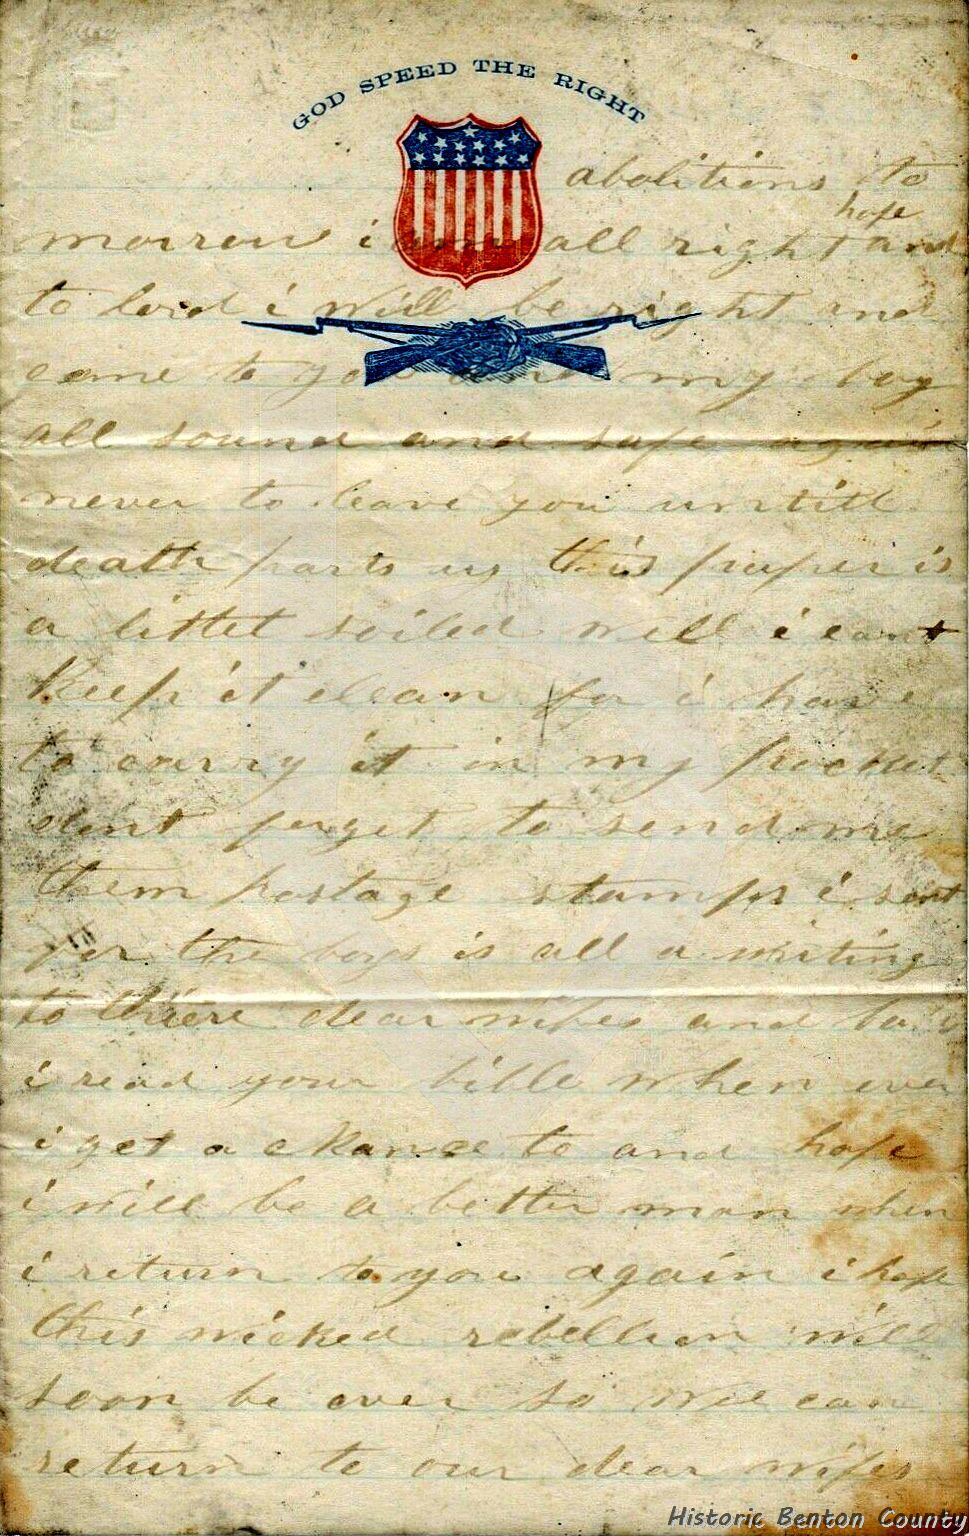 GOD SPEED THE RIGHT
abolitions to
hope
morrow i am all right and
to lord i will be right and
come to you and my boy
all sound and safe again
never to leave you untill
death parts us this paper is
a littel soiled well i cant
Keep it clean for i have
to carry it in my pocket
dont forget to send me
them postage stamps i sent
for the boys is all a writing
to there dear wifes and
i read your bible when ever
i get a chance to and hope
i will be a better man when
i return to you again i hope
this wicked rebellion will
soon be over so wee can
return to our dear wifes
Historic Benton County